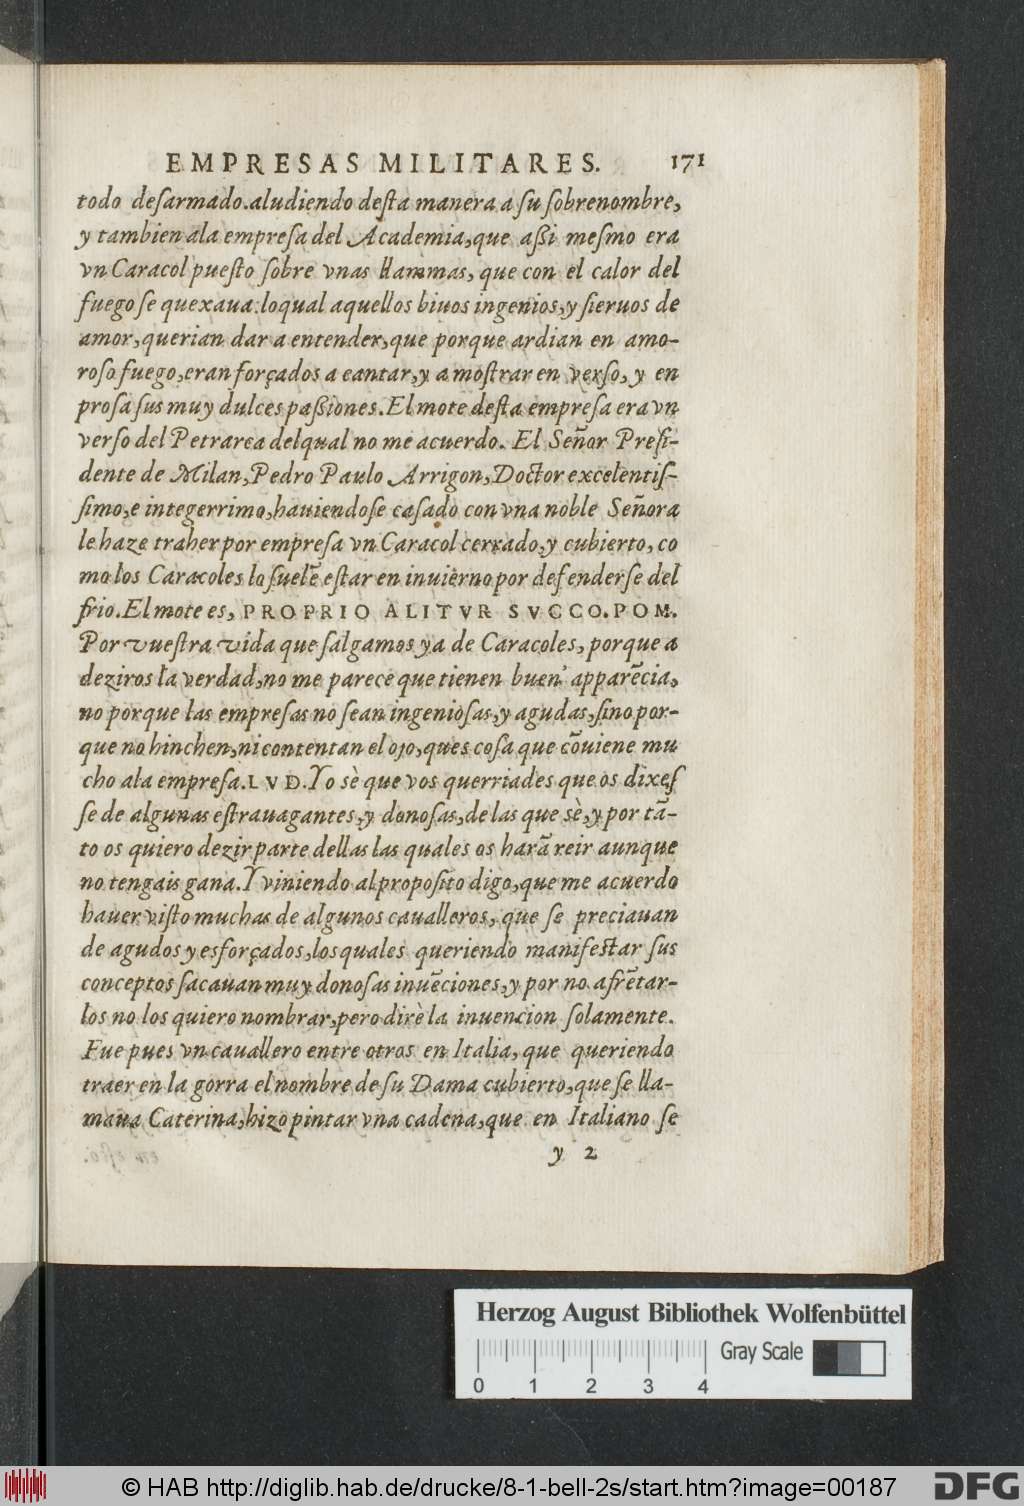 EMPRESAS MILITARES. 171
todo deſarmado.aludiendo deſta manera a ſu ſobrenombre,
y tambien ala empreſa del Academia,que aßi meſmo era
vn Caracol pueſto ſobre vnas llammas, que con el calor del
fuego ſe quexaua:loqual aquellos biuos ingenios,y ſieruos de
amor,querian dar a entender,que porque ardian en amo-
roſo fuego,eran forçados a cantar,y a moſtrar en verſo, y en
proſa ſus muy dulces paßiones.El mote deſta empreſa era vn
verſo del Petrarca delqual no me acuerdo. El Señor Preſi-
dente de Milan,Pedro Paulo Arrigon,Doctor excelentiſ-
ſimo,e integerrimo,hauiendoſe caſado con vna noble Señora
le haze traher por empreſa vn Caracol cerrado,y cubierto, co
mo los Caracoles lo ſuelē eſtar en inuierno por defenderſe del
frio.El mote es, PROPRIO ALITVR SVCCO.POM.
Por vueſtra vida que ſalgamos ya de Caracoles, porque a
deziros la verdad,no me parece que tienen buen' apparēcia,
no porque las empreſas no ſean ingenioſas,y agudas,ſino por-
que no hinchen,ni contentan el ojo,ques coſa que cōuiene mu
cho ala empreſa.LVD.Yo sè que vos querriades que os dixeſ
ſe de algunas eſtrauagantes,y donoſas,de las que sè,y por tā-
to os quiero dezir parte dellas las quales os harā reir aunque
no tengais gana.Y viniendo al propoſito digo,que me acuerdo
hauer viſto muchas de algunos caualleros, que ſe preciauan
de agudos y esforçados,los quales queriendo manifeſtar ſus
conceptos ſacauan muy donoſas inuēciones,y por no afrētar-
los no los quiero nombrar,pero dirè la inuencion ſolamente.
Fue pues vn cauallero entre otros en Italia, que queriendo
traer en la gorra el nombre de su Dama cubierto,que ſe lla-
maua Caterina,hizo pintar vna cadena,que en Italiano ſe
y 2
Herzog August Bibliothek Wolfenbüttel
Gray Scale
0 1 2 3 4
© HAB http://diglib.hab.de/drucke/8-1-bell-2s/start.htm?image=00187
DFG